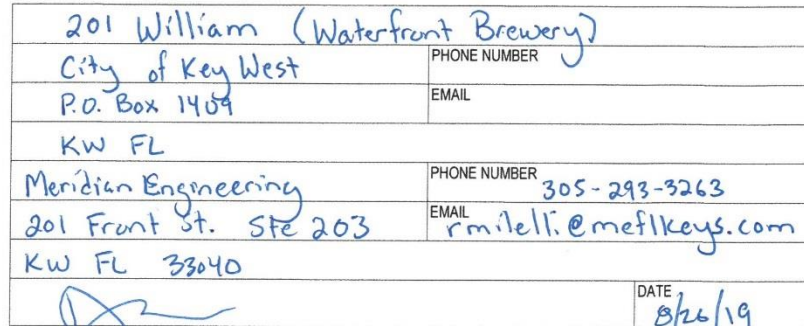 201 William (Waterfront Brewery)
City of Key West
PHONE NUMBER
P.O. Box 1409
EMAIL
KW FL
Meridian Engineering
PHONE NUMBER 305-293-3263
201 Front St. Ste 203
EMAIL rmilelli@meflkeys.com
KW FL 33040
DATE 8/26/19